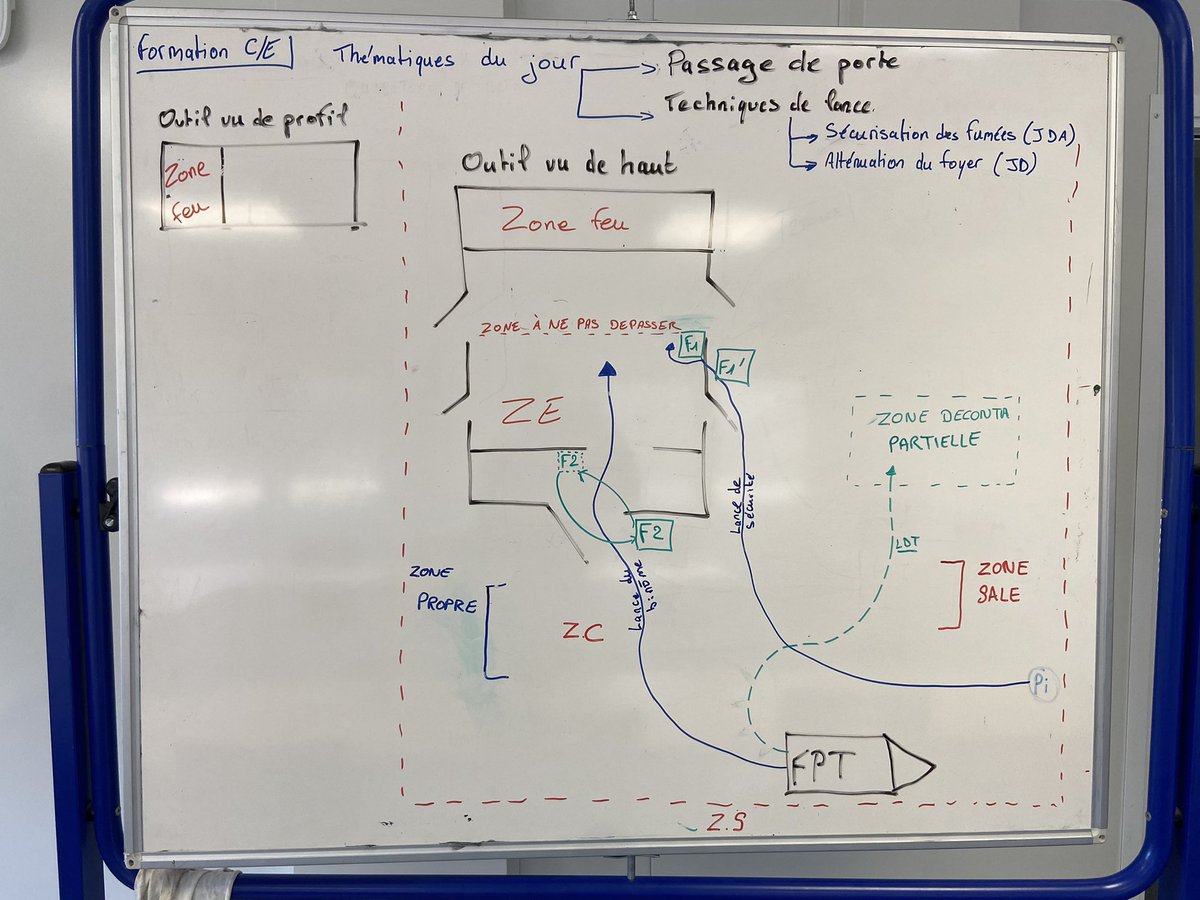 Formation C/E
Thématiques du jour
Passage de porte
Techniques de lance.
Sécurisation des fumées (JDA)
Alténuation du foyer (JD)
Outil vu de profil
Zone
feu
Outil vu de haut
Zone feu
ZONE À NE PAS DEPASSER
F1
F1'
ZE
F2
F2
ZONE DECONTA
PARTIELLE
Lance de
sécurité
LDT
ZONE
PROPRE
Lance du
binôme
Z.C
ZONE
SALE
Pi
FPT
Z.S